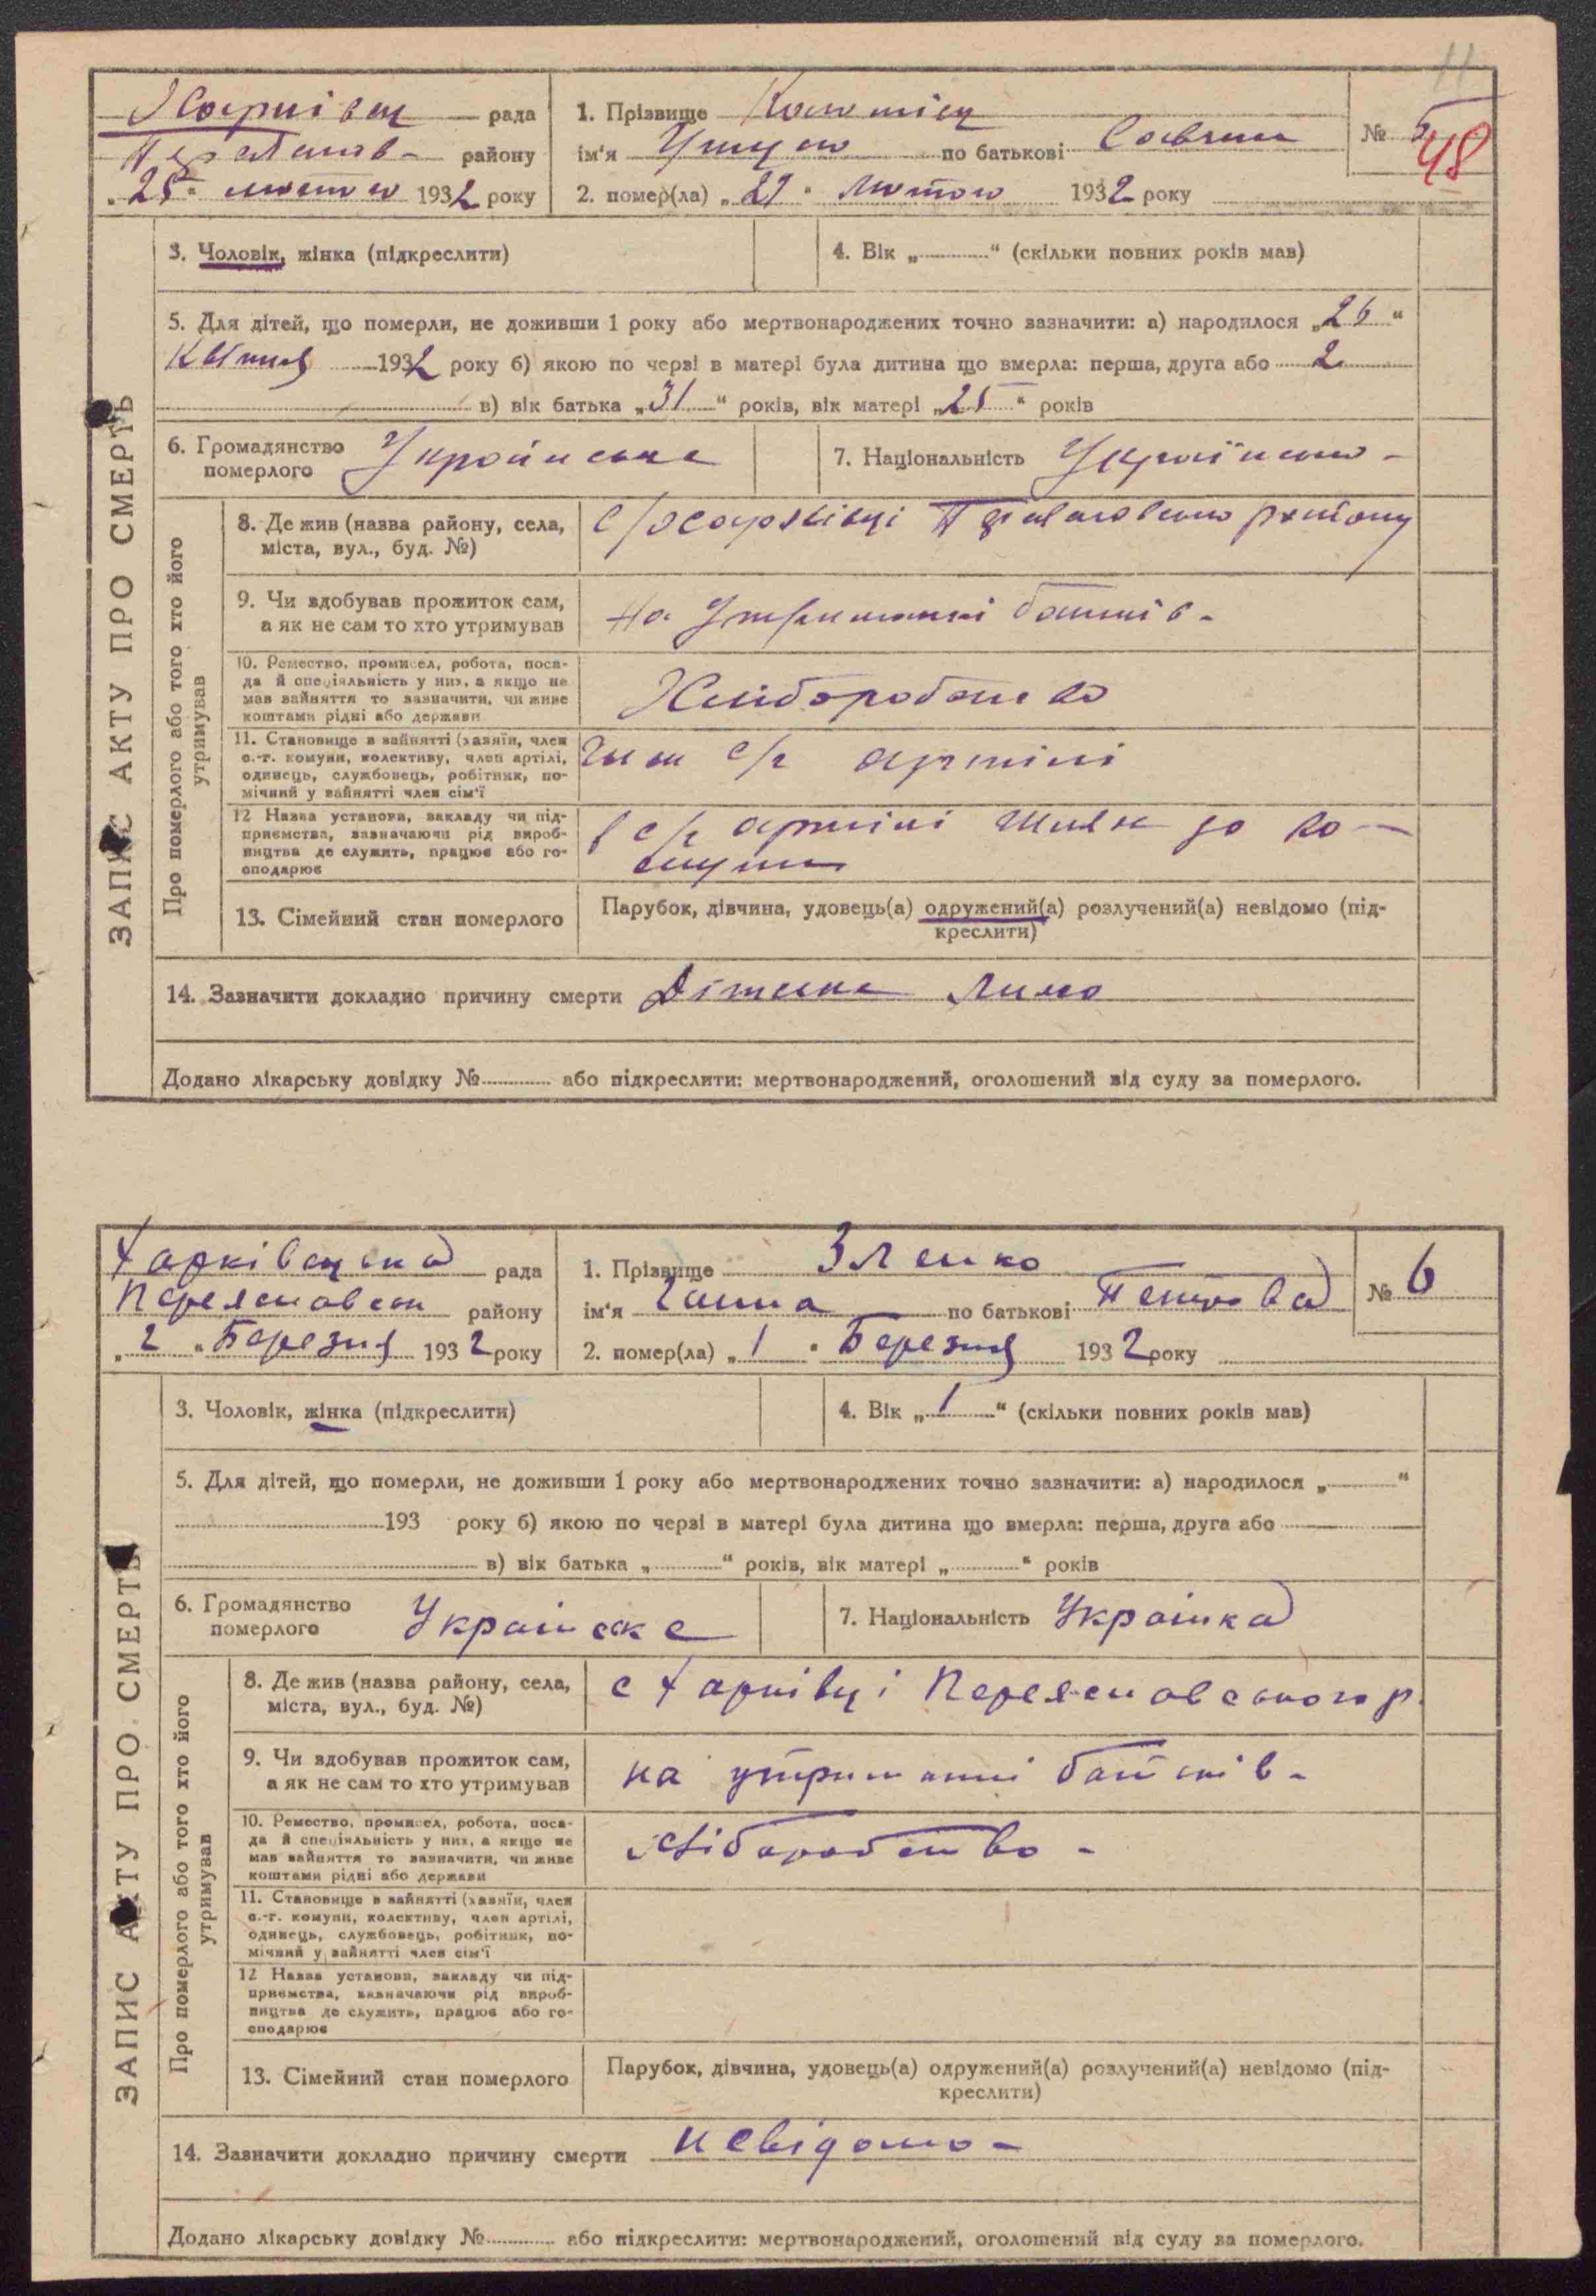 11
рада
району
25 1932 року
1. Прізвище Коломієц
ім'я по батькові
№ 5
48
2. помер(ла) „ " лютого 1932 року
3. Чоловік, жінка (підкреслити)
4. Вік „ " (скільки повних років мав)
5. Для дітей, що померли, не доживши 1 року або мертвонароджених точно зазначити: а) народилося „26"
Квітня 1932 року б) якою по черзі в матері була дитина що вмерла: перша, друга або 2
в) вік батька „31" років, вік матері „25" років
6. Громадянство
померлого
Українське
7. Національність
8. Де жив (назва району, села,
міста, вул., буд. №)
9. Чи здобував прожиток сам,
а як не сам то хто утримував
на утриманні батьків -
10. Ремество, промисел, робота, поса-
да й спеціяльність у них, а якщо не
мав зайняття то зазначити, чи живе
коштами рідні або держави
Хліборобство
11. Становище в зайнятті (хазяїн, член
с.-г. комуни, колективу, член артілі,
одинець, службовець, робітник, по-
мічний у зайнятті член сім'ї
член с/г артілі
12 Назва установи, закладу чи під-
приємства, зазначаючи рід вироб-
ництва де служить, працює або го-
сподарює
в с/г артілі Шлях до ко-
муни
13. Сімейний стан померлого
Парубок, дівчина, удовець(а) одружений(а) розлучений(а) невідомо (під-
креслити)
14. Зазначити докладно причину смерти Дітське
Додано лікарську довідку № або підкреслити: мертвонароджений, оголошений від суду за померлого.
ЗАПИС АКТУ ПРО СМЕРТЬ
Про померлого або того хто його
утримував
Харківецька рада
Переяславськ району
„2" Березня 1932 року
1. Прізвище Зленко
ім'я Ганна по батькові Петрова
№ 6
2. помер(ла) „1" Березня 1932 року
3. Чоловік, жінка (підкреслити)
4. Вік „1" (скільки повних років мав)
5. Для дітей, що померли, не доживши 1 року або мертвонароджених точно зазначити: а) народилося „ "
193 року б) якою по черзі в матері була дитина що вмерла: перша, друга або
в) вік батька „ " років, вік матері „ " років
6. Громадянство
померлого
Українське
7. Національність Українка
8. Де жив (назва району, села,
міста, вул., буд. №)
с Харківці Переяславського р.
9. Чи здобував прожиток сам,
а як не сам то хто утримував
на утриманні батьків -
10. Ремество, промисел, робота, поса-
да й спеціяльність у них, а якщо не
мав зайняття то зазначити, чи живе
коштами рідні або держави
Хліборобство -
11. Становище в зайнятті (хазяїн, член
с.-г. комуни, колективу, член артілі,
одинець, службовець, робітник, по-
мічний у зайнятті член сім'ї
12 Назва установи, закладу чи під-
приємства, зазначаючи рід вироб-
ництва де служить, працює або го-
сподарює
13. Сімейний стан померлого
Парубок, дівчина, удовець(а) одружений(а) розлучений(а) невідомо (під-
креслити)
14. Зазначити докладно причину смерти невідомо -
Додано лікарську довідку № або підкреслити: мертвонароджений, оголошений від суду за померлого.
ЗАПИС АКТУ ПРО СМЕРТЬ
Про померлого або того хто його
утримував